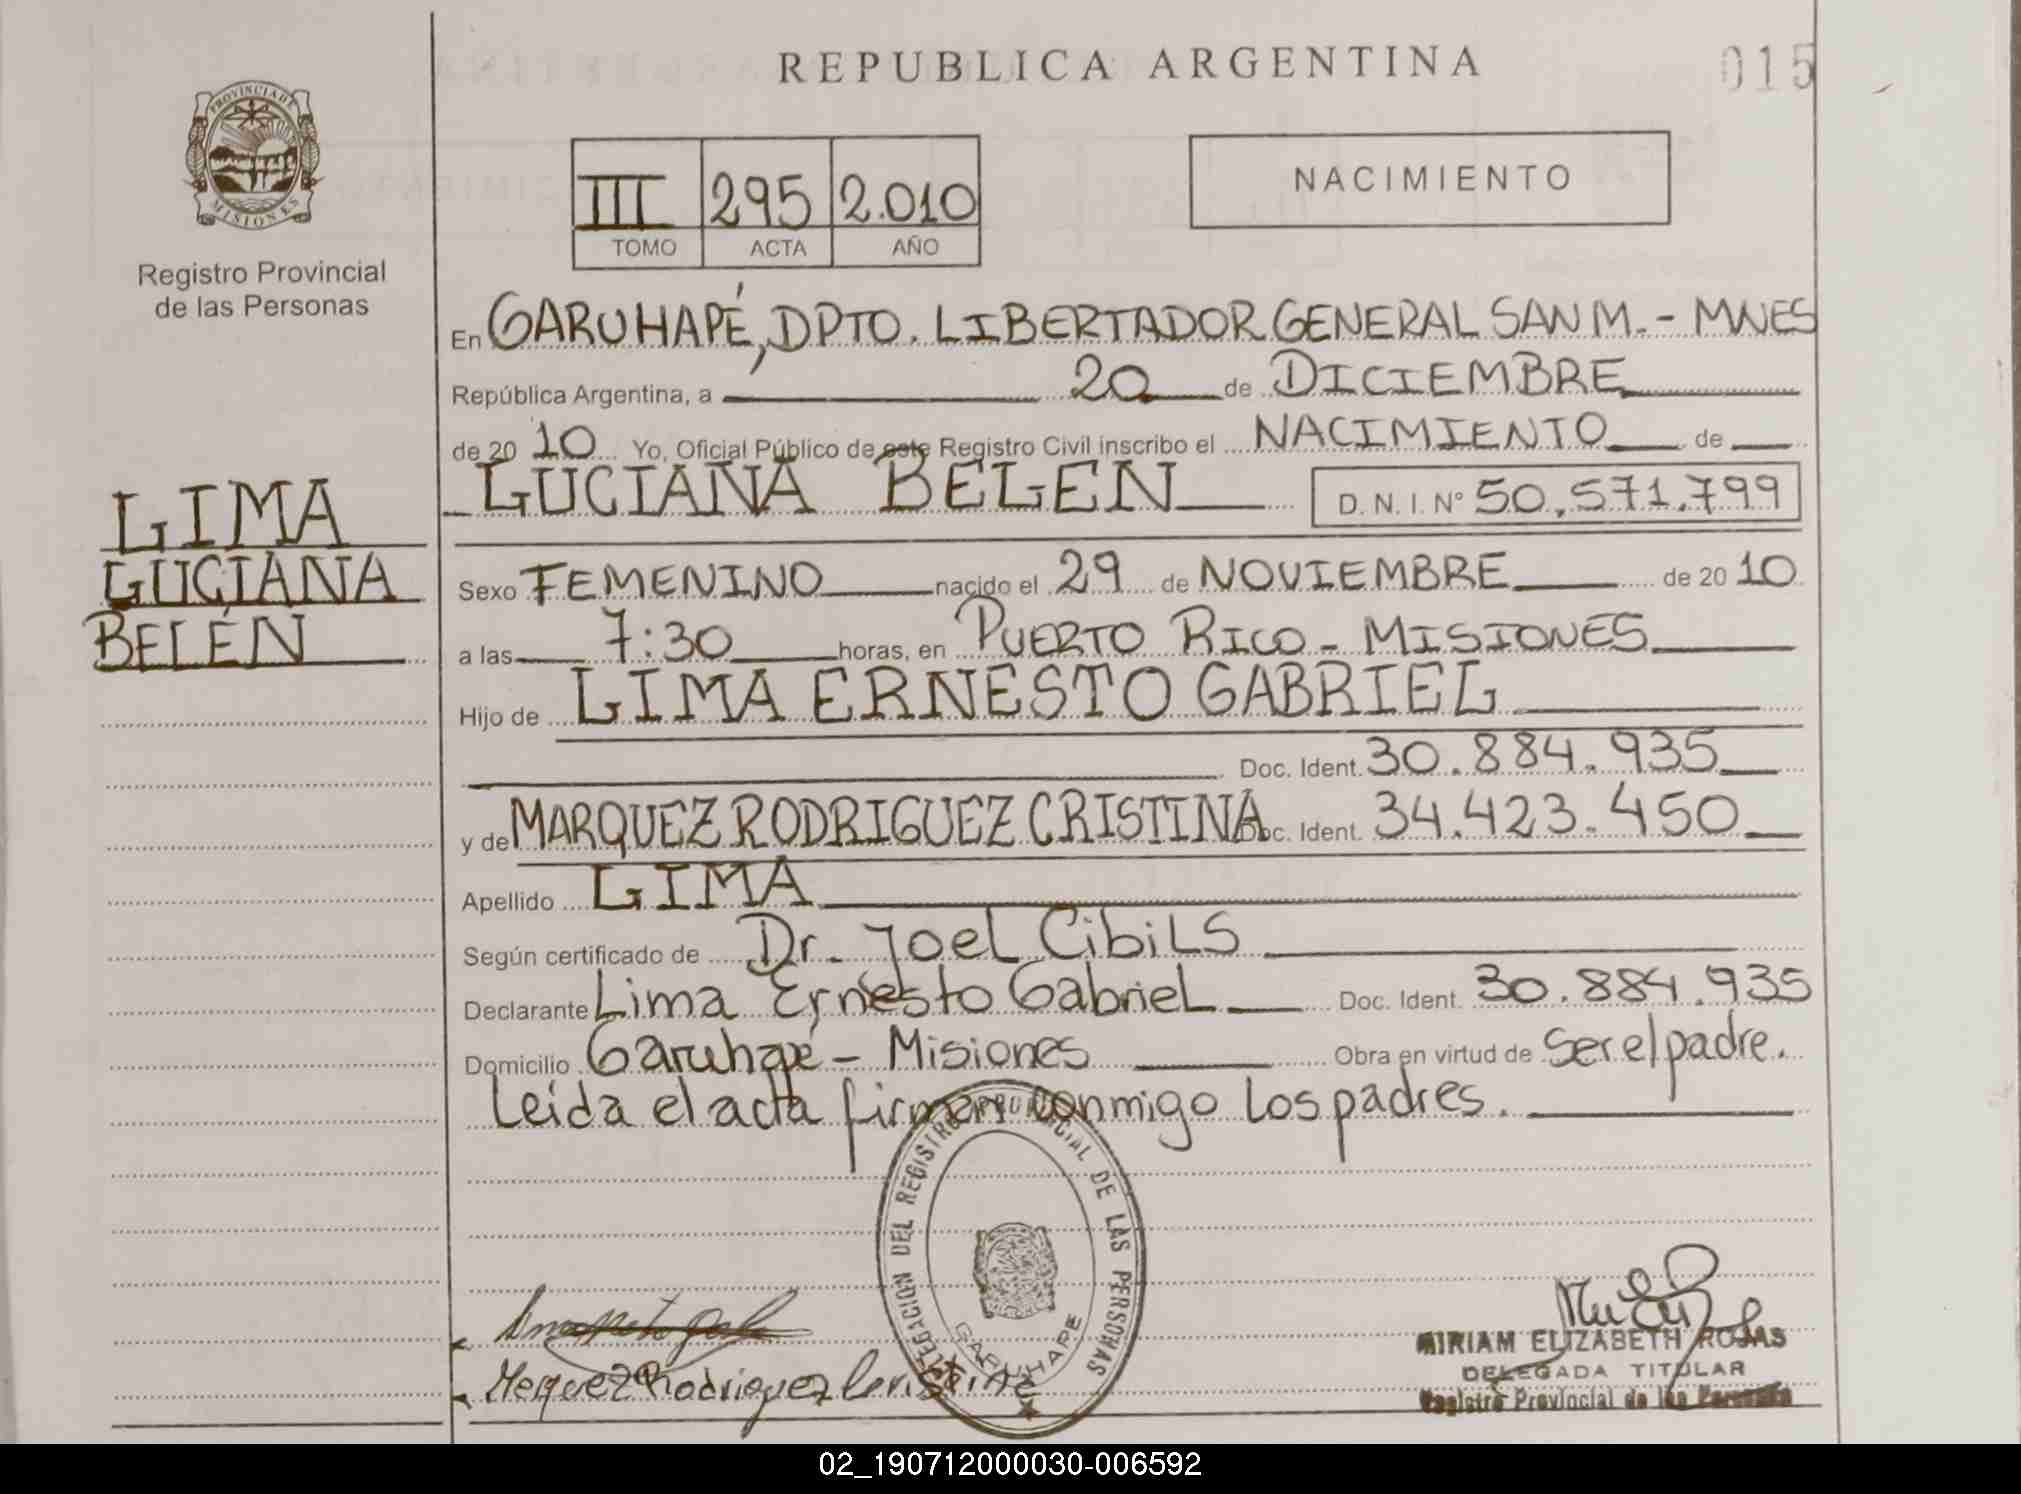 REPUBLICA ARGENTINA
015
PROVINCIA DE
MISIONES
Registro Provincial
de las Personas
III 295 2.010
TOMO ACTA AÑO
NACIMIENTO
En GARUHAPÉ, DPTO. LIBERTADOR GENERAL SAN M. - MNES
República Argentina, a 20 de DICIEMBRE
de 20 10 Yo, Oficial Público de este Registro Civil inscribo el NACIMIENTO de
LUCIANA BELEN D.N.I. Nº 50.571.799
LIMA
LUCIANA
BELÉN
Sexo FEMENINO nacido el 29 de NOVIEMBRE de 20 10
a las 7:30 horas, en PUERTO RICO - MISIONES
Hijo de LIMA ERNESTO GABRIEL
Doc. Ident. 30.884.935
y de MARQUEZ RODRIGUEZ CRISTINA Doc. Ident. 34.423.450
Apellido LIMA
Según certificado de Dr. Joel Cibils
Declarante Lima Ernesto Gabriel Doc. Ident. 30.884.935
Domicilio Garuhapé - Misiones Obra en virtud de Ser el padre.
Leída el acta firman conmigo los padres.
DELEGACION DEL REGISTRO PROVINCIAL DE LAS PERSONAS
GARUHAPE
MIRIAM ELIZABETH ROJAS
DELEGADA TITULAR
Registro Provincial de las Personas
Merquez Rodriguez Cristine
02_190712000030-006592